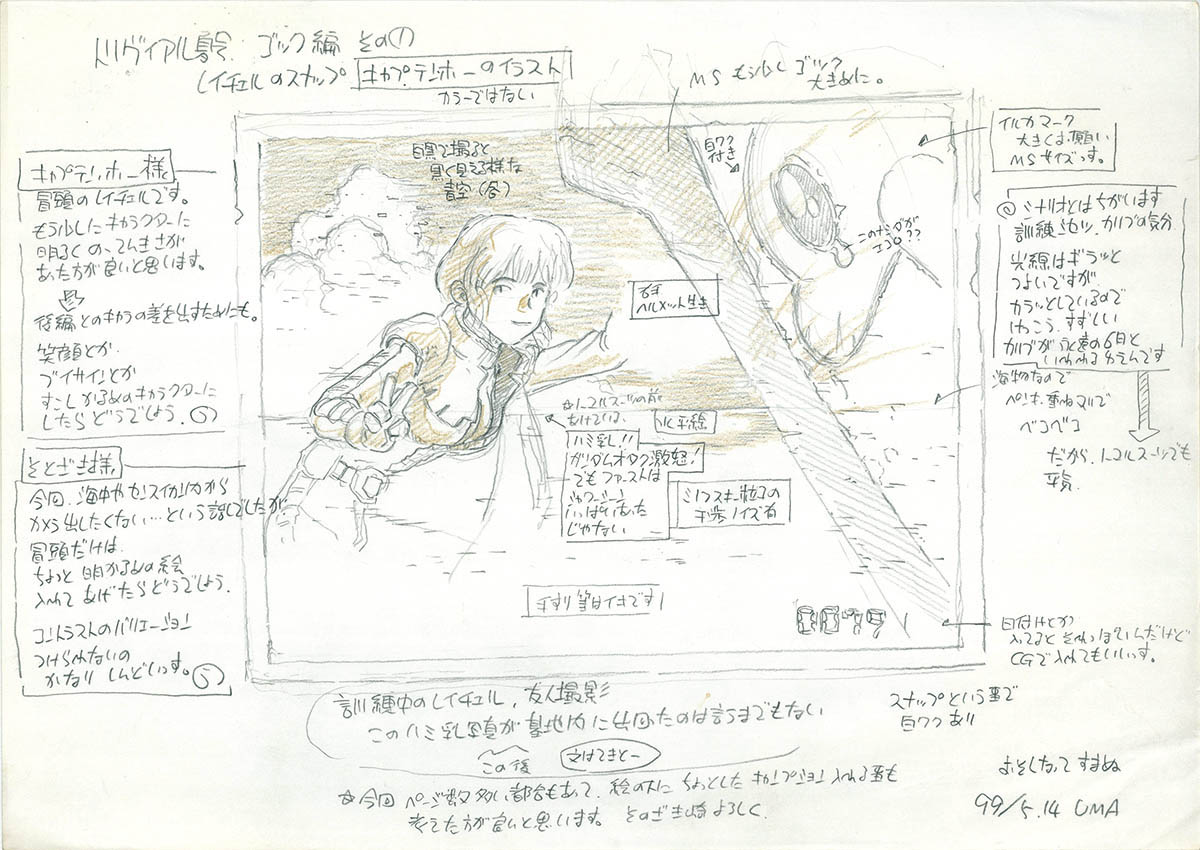 トリヴィアル ゴッグ編 その①
レイチェルのスナップ キャプテンホーのイラスト
カラーではない
MS もう少し ゴッグ
大きめに。
イルカマーク
大きくお願い
MSサイズっす。
キャプテンホー様
冒頭のレイチェルです。
もう少しキャラクターに
明るくのってんきさが
あった方が良いと思います。
後編とのキャラの差を出すためにも。
笑顔とか
ブイサインとか
すこしかるめのキャラクターに
したらどうでしょう。
白黒で撮ると
黒く見える様な
青空(谷)
白ワク
付き
シナリオとはちがいます
訓練 カリブの気分
光線はギラッと
つよいですが
カラッとしているので
けっこう、すずしい
カリブが永遠の6月と
いわれるゆえんです
右手
ヘルメット生き
海物なので
ペンキ、重ねヌリで
ベコベコ
だから、ノーマルスーツでも
平気
ノーマルスーツの前
あけている、
水平線
ハミ乳!!
ガンダムオタク激怒!
でもファーストは
シャワーシーン
いっぱいあった
じゃない
ミノフスキー粒子の
干渉ノイズ有
手すり等はイキです!
今回、海中や
出したくない…という話でしたが
冒頭だけは、
ちょっと明かるめの絵
入れてあげたらどうでしょう。
コントラストのバリエーション
つけられないの
かなり しんどいっす。
0079
日付けとか
入ってると それっぽいんだけど
CGで入れてもいいっす。
訓練中のレイチェル、友人撮影
このハミ乳写真が基地内に出回ったのは言うまでもない
この後 文はてきとー
スナップという事で
白ワクあり
☆今回 ページ数多い都合もあって、絵の下に ちょっとした キャプション入れる事も
考えた方が良いと思います。 よろしく.
おそくなって すまぬ
99/5.14 UMA